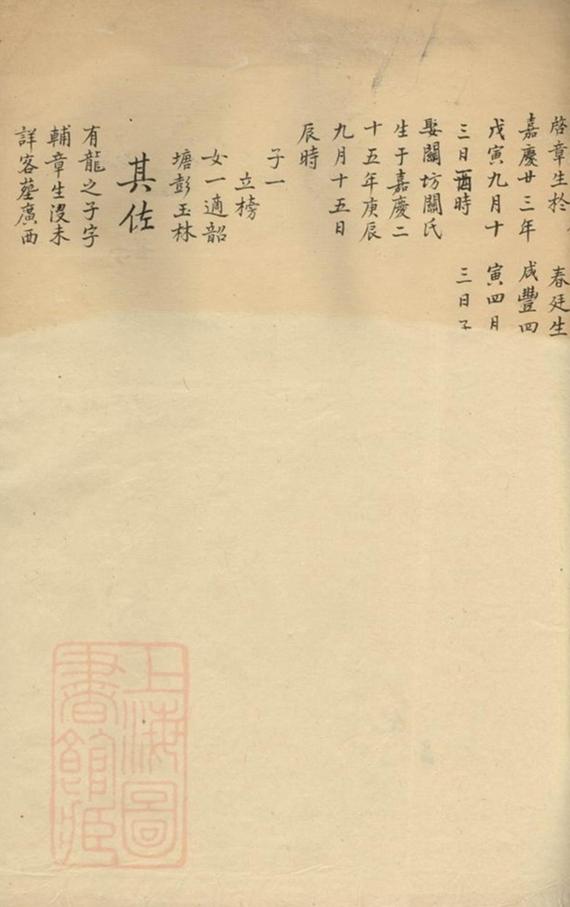 啓章生於
嘉慶廿三年
戊寅九月十
三日酉時
娶關坊關氏
生于嘉慶二
十五年庚辰
九月十五日
辰時
子一
立榜
女一適韶
塘彭玉林
其佐
有龍之子字
輔章生沒未
詳客塟廣西
春廷生
咸豐四
寅四月
三日
上海圖
書館藏